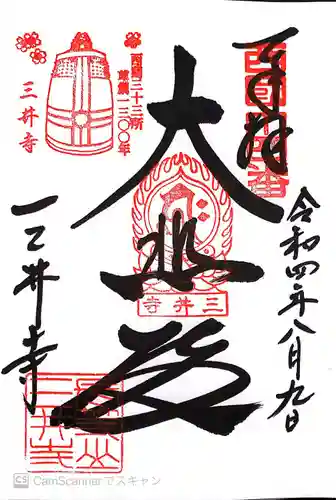 奉拝
西国十四番
令和四年八月九日
大悲殿
三井寺
西国三十三所
草創一三〇〇年
三井寺
三井寺
三井寺
CS CamScannerでスキャン